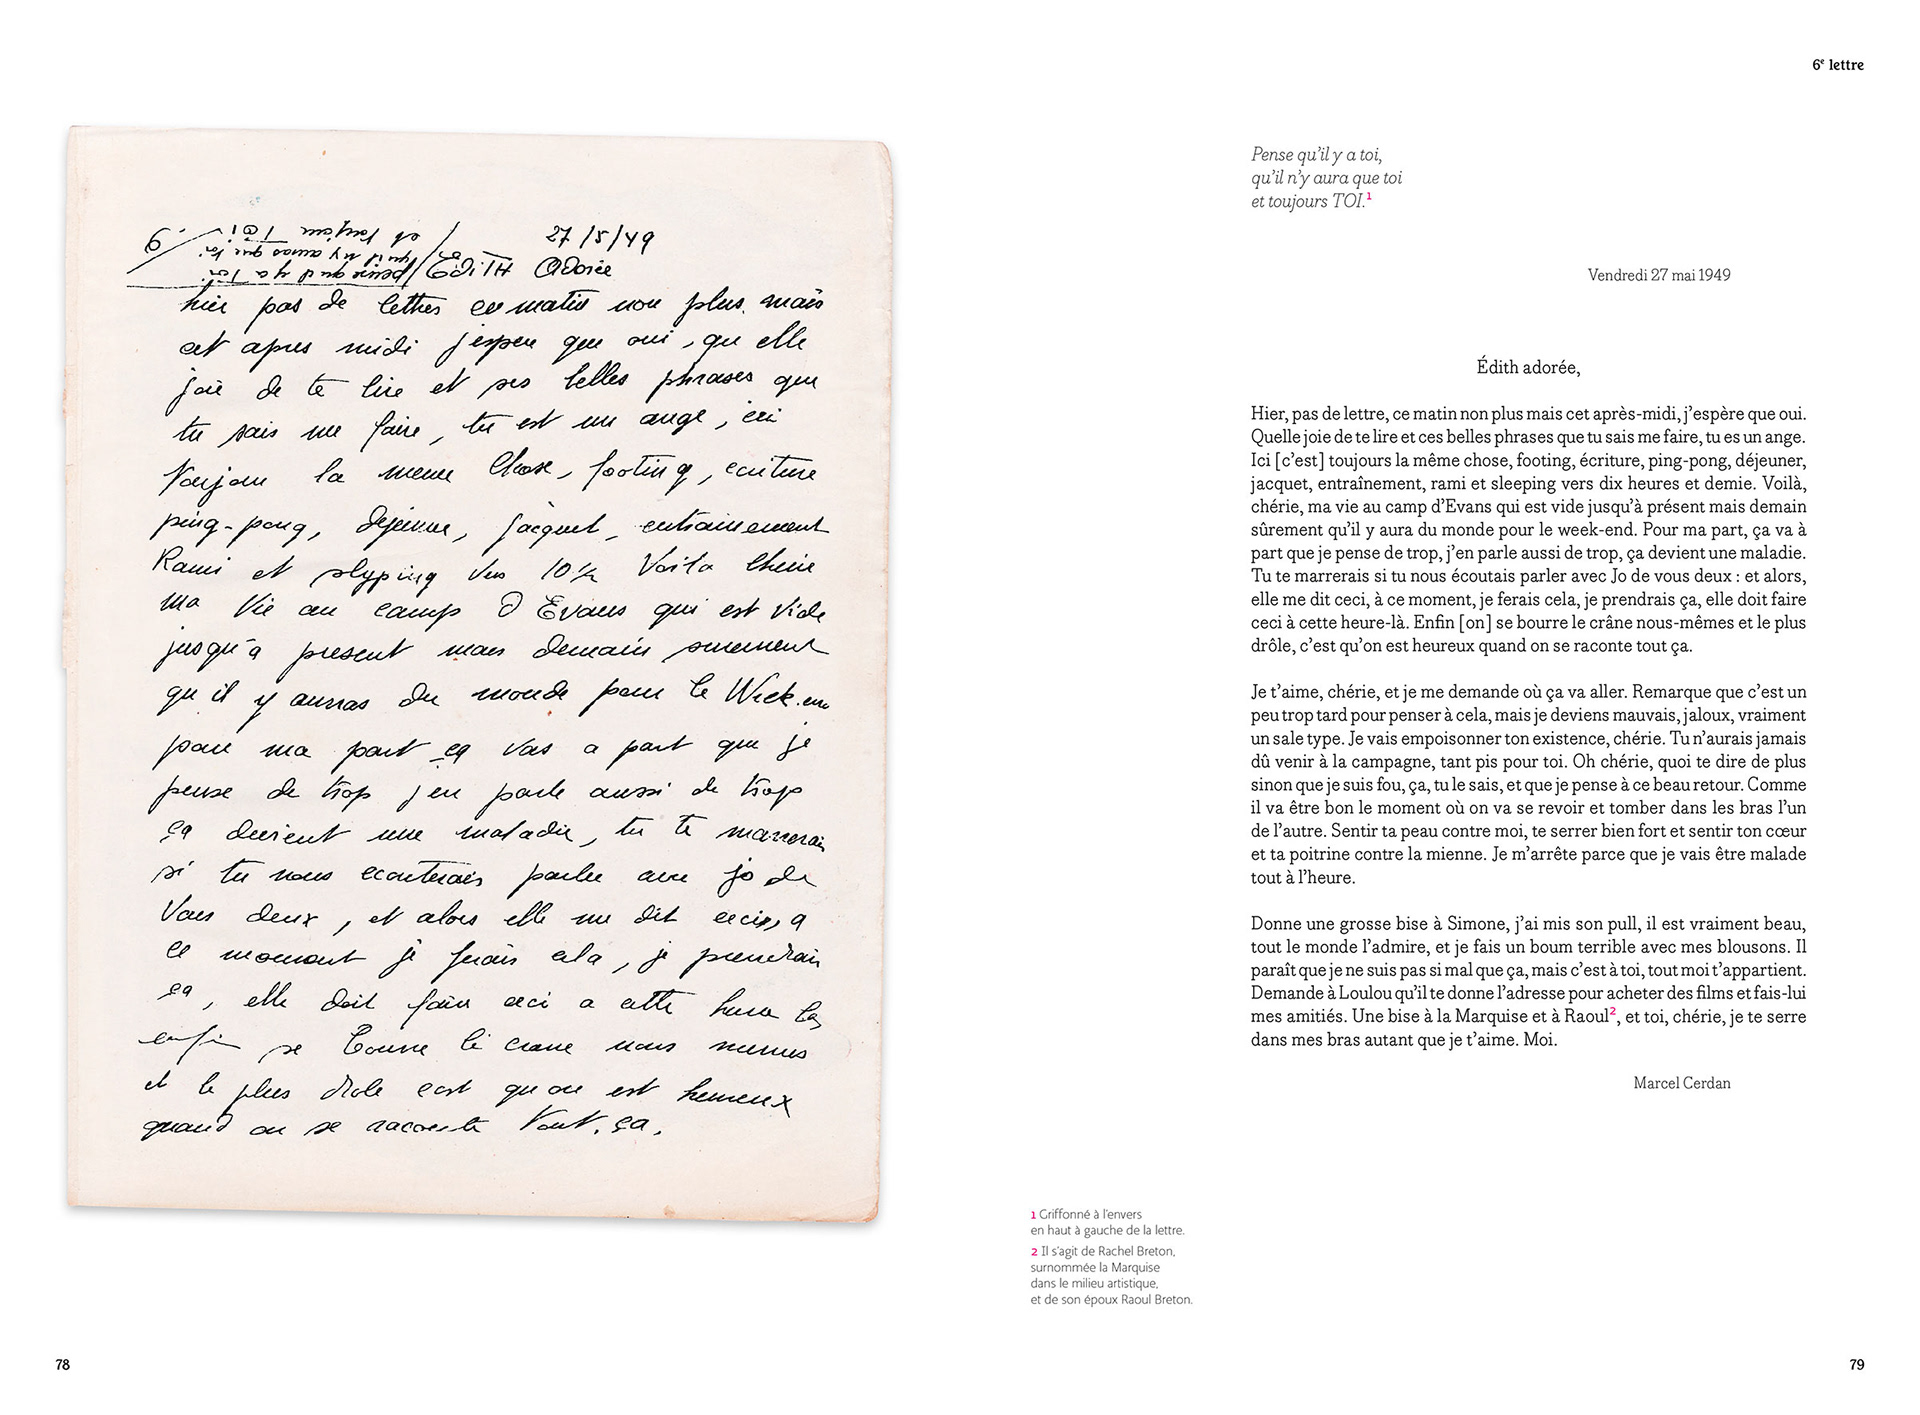 6.
27/5/49
et toujours TOI
qu'il n'y auras que toi
pense qu'il y a Toi
EdiTH Adorée
hier pas de lettres ce matin non plus. mais
cet apres midi j'espere que oui, quelle
joie de te lire et ses belles phrases que
tu sais me faire, tu est un ange, ici
toujour la meme chose, footing, ecriture
ping-pong, dejeuner, jacquet, entrainement
Rami et slyping vers 10½ Voila cherie
ma vie au camp d Evans qui est vide
jusqu'a present mais demain surement
qu'il y auras du monde pour le Week-en
pour ma part ça vas a part que je
pense de trop j'en parle aussi de trop
ça devient une maladie, tu te marrerais
si tu nous ecouterais parler avec jo de
vous deux, et alors elle me dit ceci, a
ce moment je ferais cela, je prendrais
ça, elle doit faire ceci a cette heure la
enfin se bourre le crane nous memes
et le plus drole cest qu'on est heureux
quand on se raconte tout. ça.
78
6e lettre
Pense qu'il y a toi,
qu'il n'y aura que toi
et toujours TOI.1
Vendredi 27 mai 1949
Édith adorée,
Hier, pas de lettre, ce matin non plus mais cet après-midi, j'espère que oui.
Quelle joie de te lire et ces belles phrases que tu sais me faire, tu es un ange.
Ici [c'est] toujours la même chose, footing, écriture, ping-pong, déjeuner,
jacquet, entraînement, rami et sleeping vers dix heures et demie. Voilà,
chérie, ma vie au camp d'Evans qui est vide jusqu'à présent mais demain
sûrement qu'il y aura du monde pour le week-end. Pour ma part, ça va à
part que je pense de trop, j'en parle aussi de trop, ça devient une maladie.
Tu te marrerais si tu nous écoutais parler avec Jo de vous deux : et alors,
elle me dit ceci, à ce moment, je ferais cela, je prendrais ça, elle doit faire
ceci à cette heure-là. Enfin [on] se bourre le crâne nous-mêmes et le plus
drôle, c'est qu'on est heureux quand on se raconte tout ça.
Je t'aime, chérie, et je me demande où ça va aller. Remarque que c'est un
peu trop tard pour penser à cela, mais je deviens mauvais, jaloux, vraiment
un sale type. Je vais empoisonner ton existence, chérie. Tu n'aurais jamais
dû venir à la campagne, tant pis pour toi. Oh chérie, quoi te dire de plus
sinon que je suis fou, ça, tu le sais, et que je pense à ce beau retour. Comme
il va être bon le moment où on va se revoir et tomber dans les bras l'un
de l'autre. Sentir ta peau contre moi, te serrer bien fort et sentir ton cœur
et ta poitrine contre la mienne. Je m'arrête parce que je vais être malade
tout à l'heure.
Donne une grosse bise à Simone, j'ai mis son pull, il est vraiment beau,
tout le monde l'admire, et je fais un boum terrible avec mes blousons. Il
paraît que je ne suis pas si mal que ça, mais c'est à toi, tout moi t'appartient.
Demande à Loulou qu'il te donne l'adresse pour acheter des films et fais-lui
mes amitiés. Une bise à la Marquise et à Raoul2, et toi, chérie, je te serre
dans mes bras autant que je t'aime. Moi.
Marcel Cerdan
1 Griffonné à l'envers
en haut à gauche de la lettre.
2 Il s'agit de Rachel Breton,
surnommée la Marquise
dans le milieu artistique,
et de son époux Raoul Breton.
79